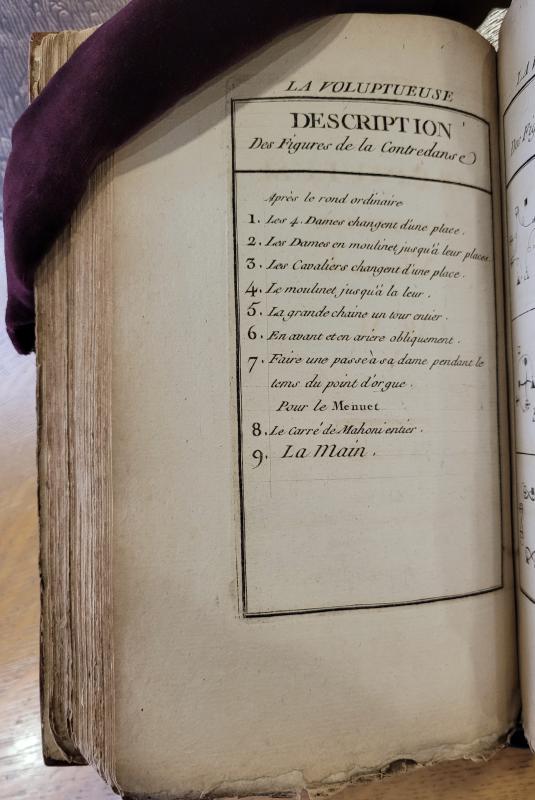 LA VOLUPTUEUSE
DESCRIPTION
Des Figures de la Contredanse
Après le rond ordinaire
1. Les 4. Dames changent d'une place.
2. Les Dames en moulinet jusqu'à leur places.
3. Les Cavaliers changent d'une place.
4. Le moulinet jusqu'à la leur.
5. La grande chaine un tour entier.
6. En avant et en ariere obliquement.
7. Faire une passe à sa dame pendant le
tems du point d'orgue.
Pour le Menuet
8. Le Carré de Mahoni entier.
9. La Main.